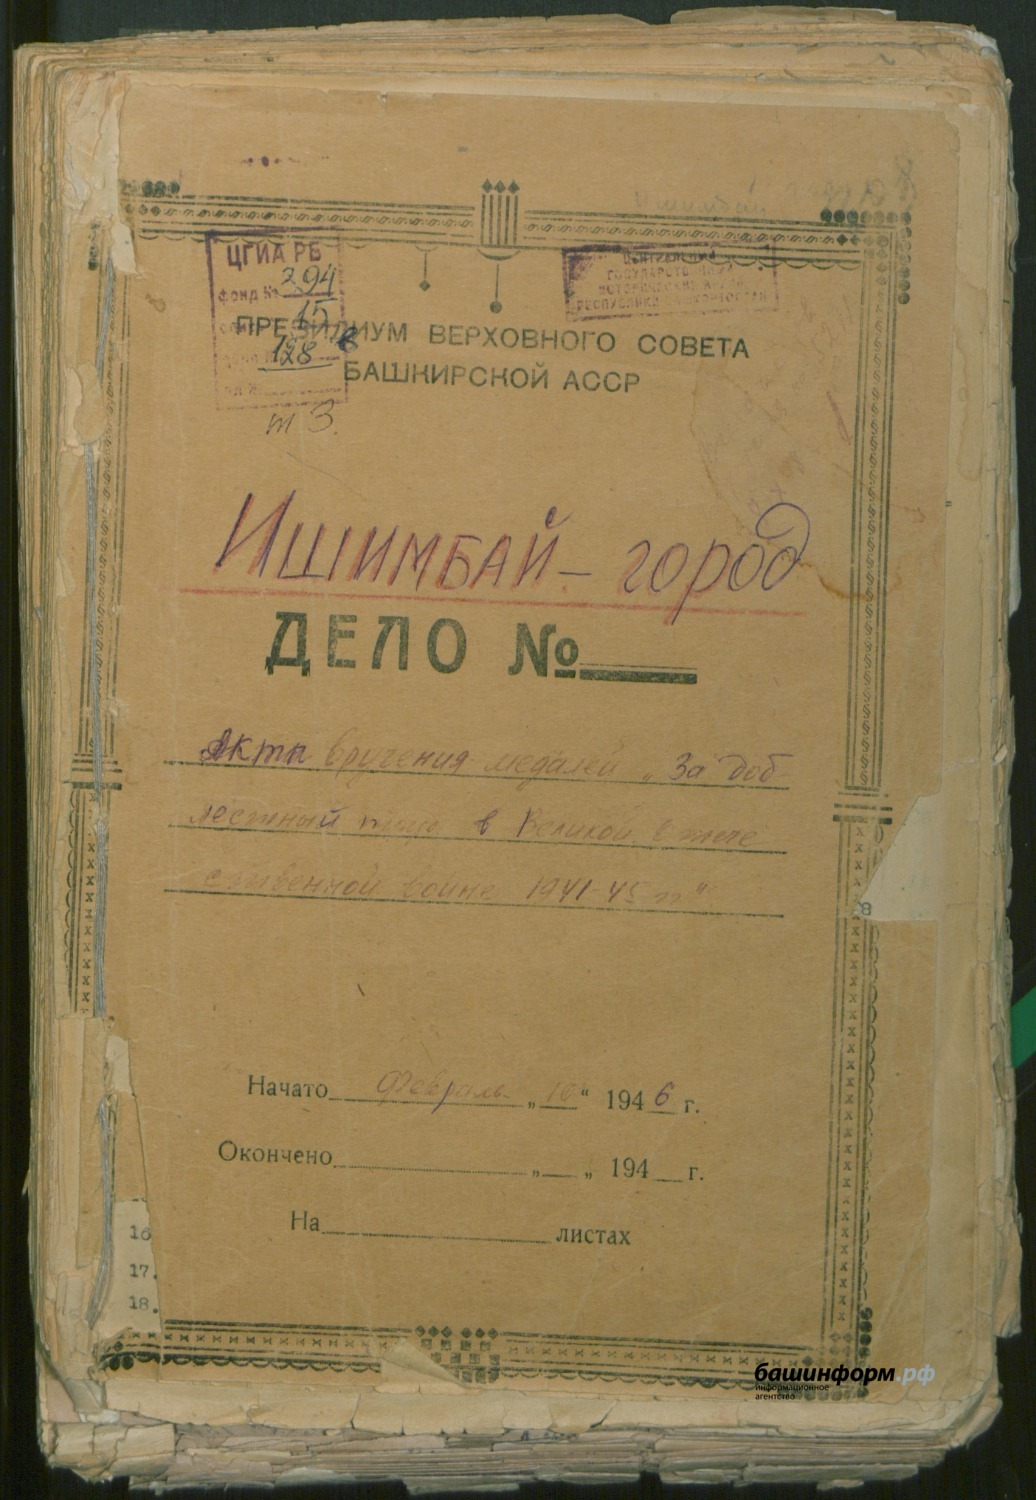 Ишимбай
ЦГИА РБ
фонд № 294
15
128
т 3.
ЦЕНТРАЛЬНЫЙ
ГОСУДАРСТВЕННЫЙ
ИСТОРИЧЕСКИЙ АРХИВ
РЕСПУБЛИКИ БАШКОРТОСТАН
ПРЕЗИДИУМ ВЕРХОВНОГО СОВЕТА
БАШКИРСКОЙ АССР
Ишимбай - город
ДЕЛО №
Акты вручения медалей „За доб-
лестный труд в Великой Отече
ственной войне 1941-45 гг"
8
Начато Февраль „10“ 1946 г.
Окончено „ „ 194 г.
На листах
16
17.
18.
башинформ.рф
информационное
агентство